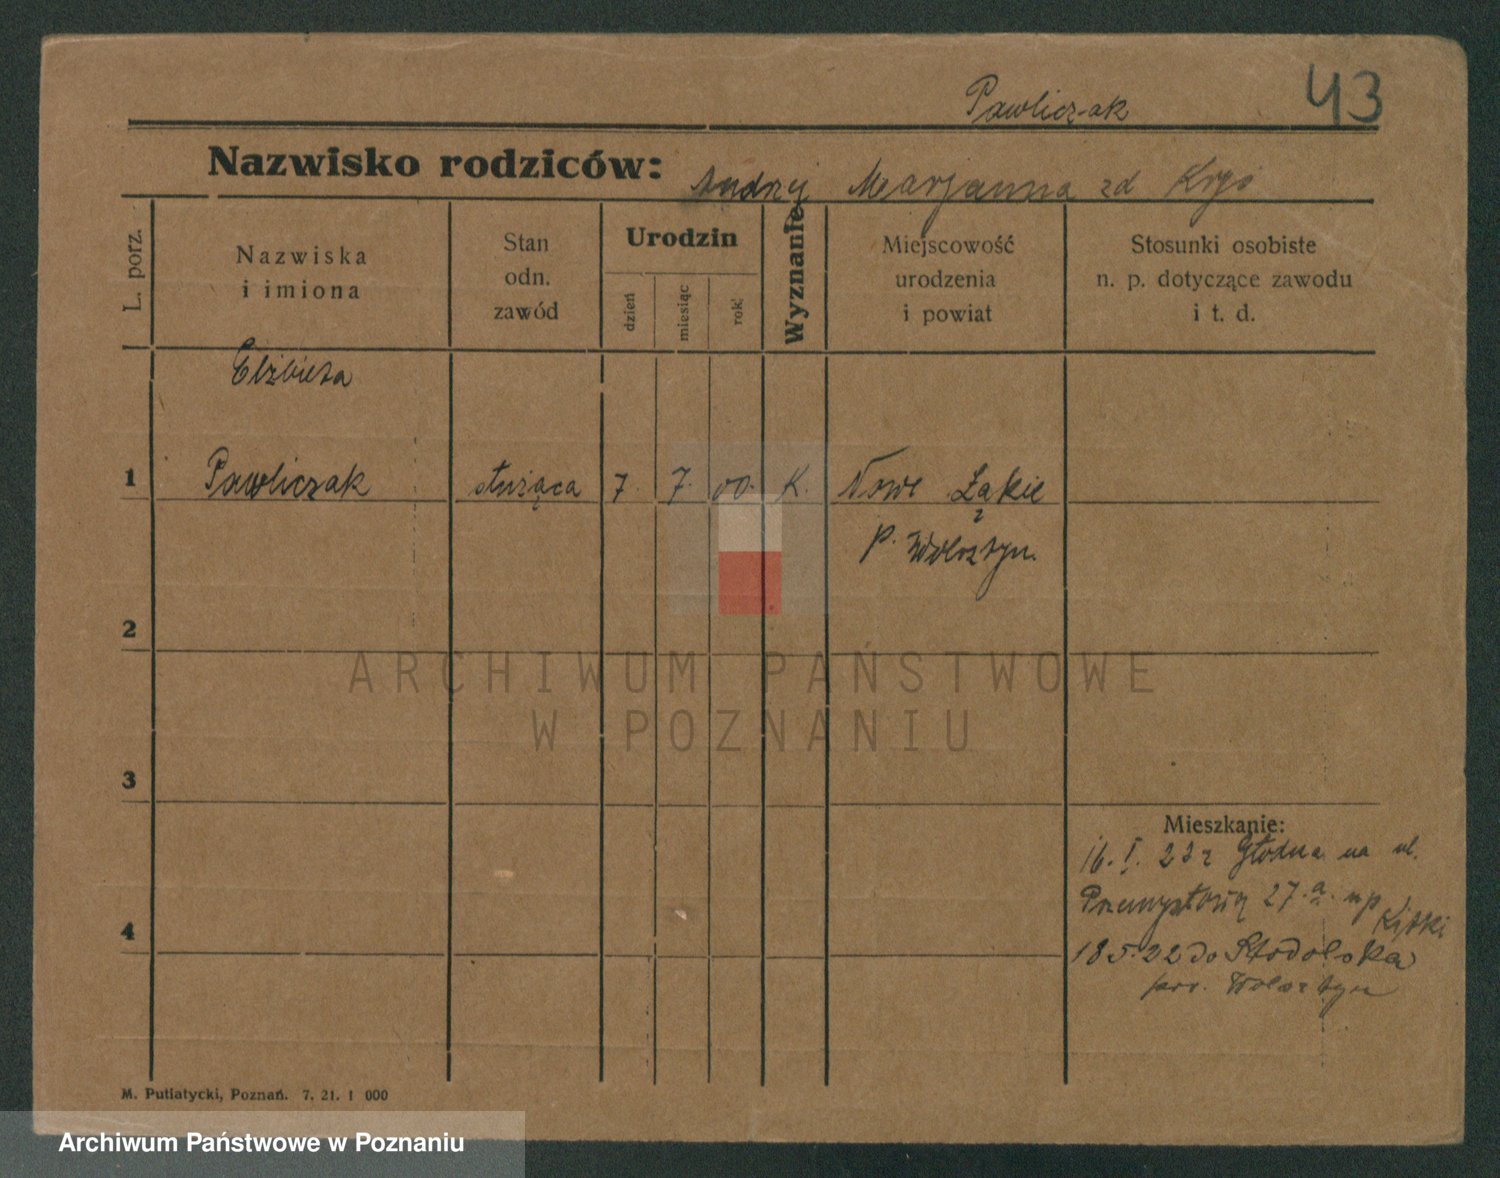 Pawliczak 43
Nazwisko rodziców: Andrzej Marjanna zd
L. porz.
Nazwiska
i imiona
Stan
odn.
zawód
Urodzin
dzień
miesiąc
rok
Wyznanie
Miejscowość
urodzenia
i powiat
Stosunki osobiste
n. p. dotyczące zawodu
i t. d.
Elżbieta
1 Pawliczak służąca 7. 7. 00. K. Nowe
p. Wolsztyn.
2
3
4
ARCHIWUM PAŃSTWOWE
W POZNANIU
Mieszkanie:
16. I. 22 z na ul.
27.a.
18 5. 22 do Stodolska
pow. Wolsztyn
M. Putiatycki, Poznań. 7. 21. 1 000
Archiwum Państwowe w Poznaniu